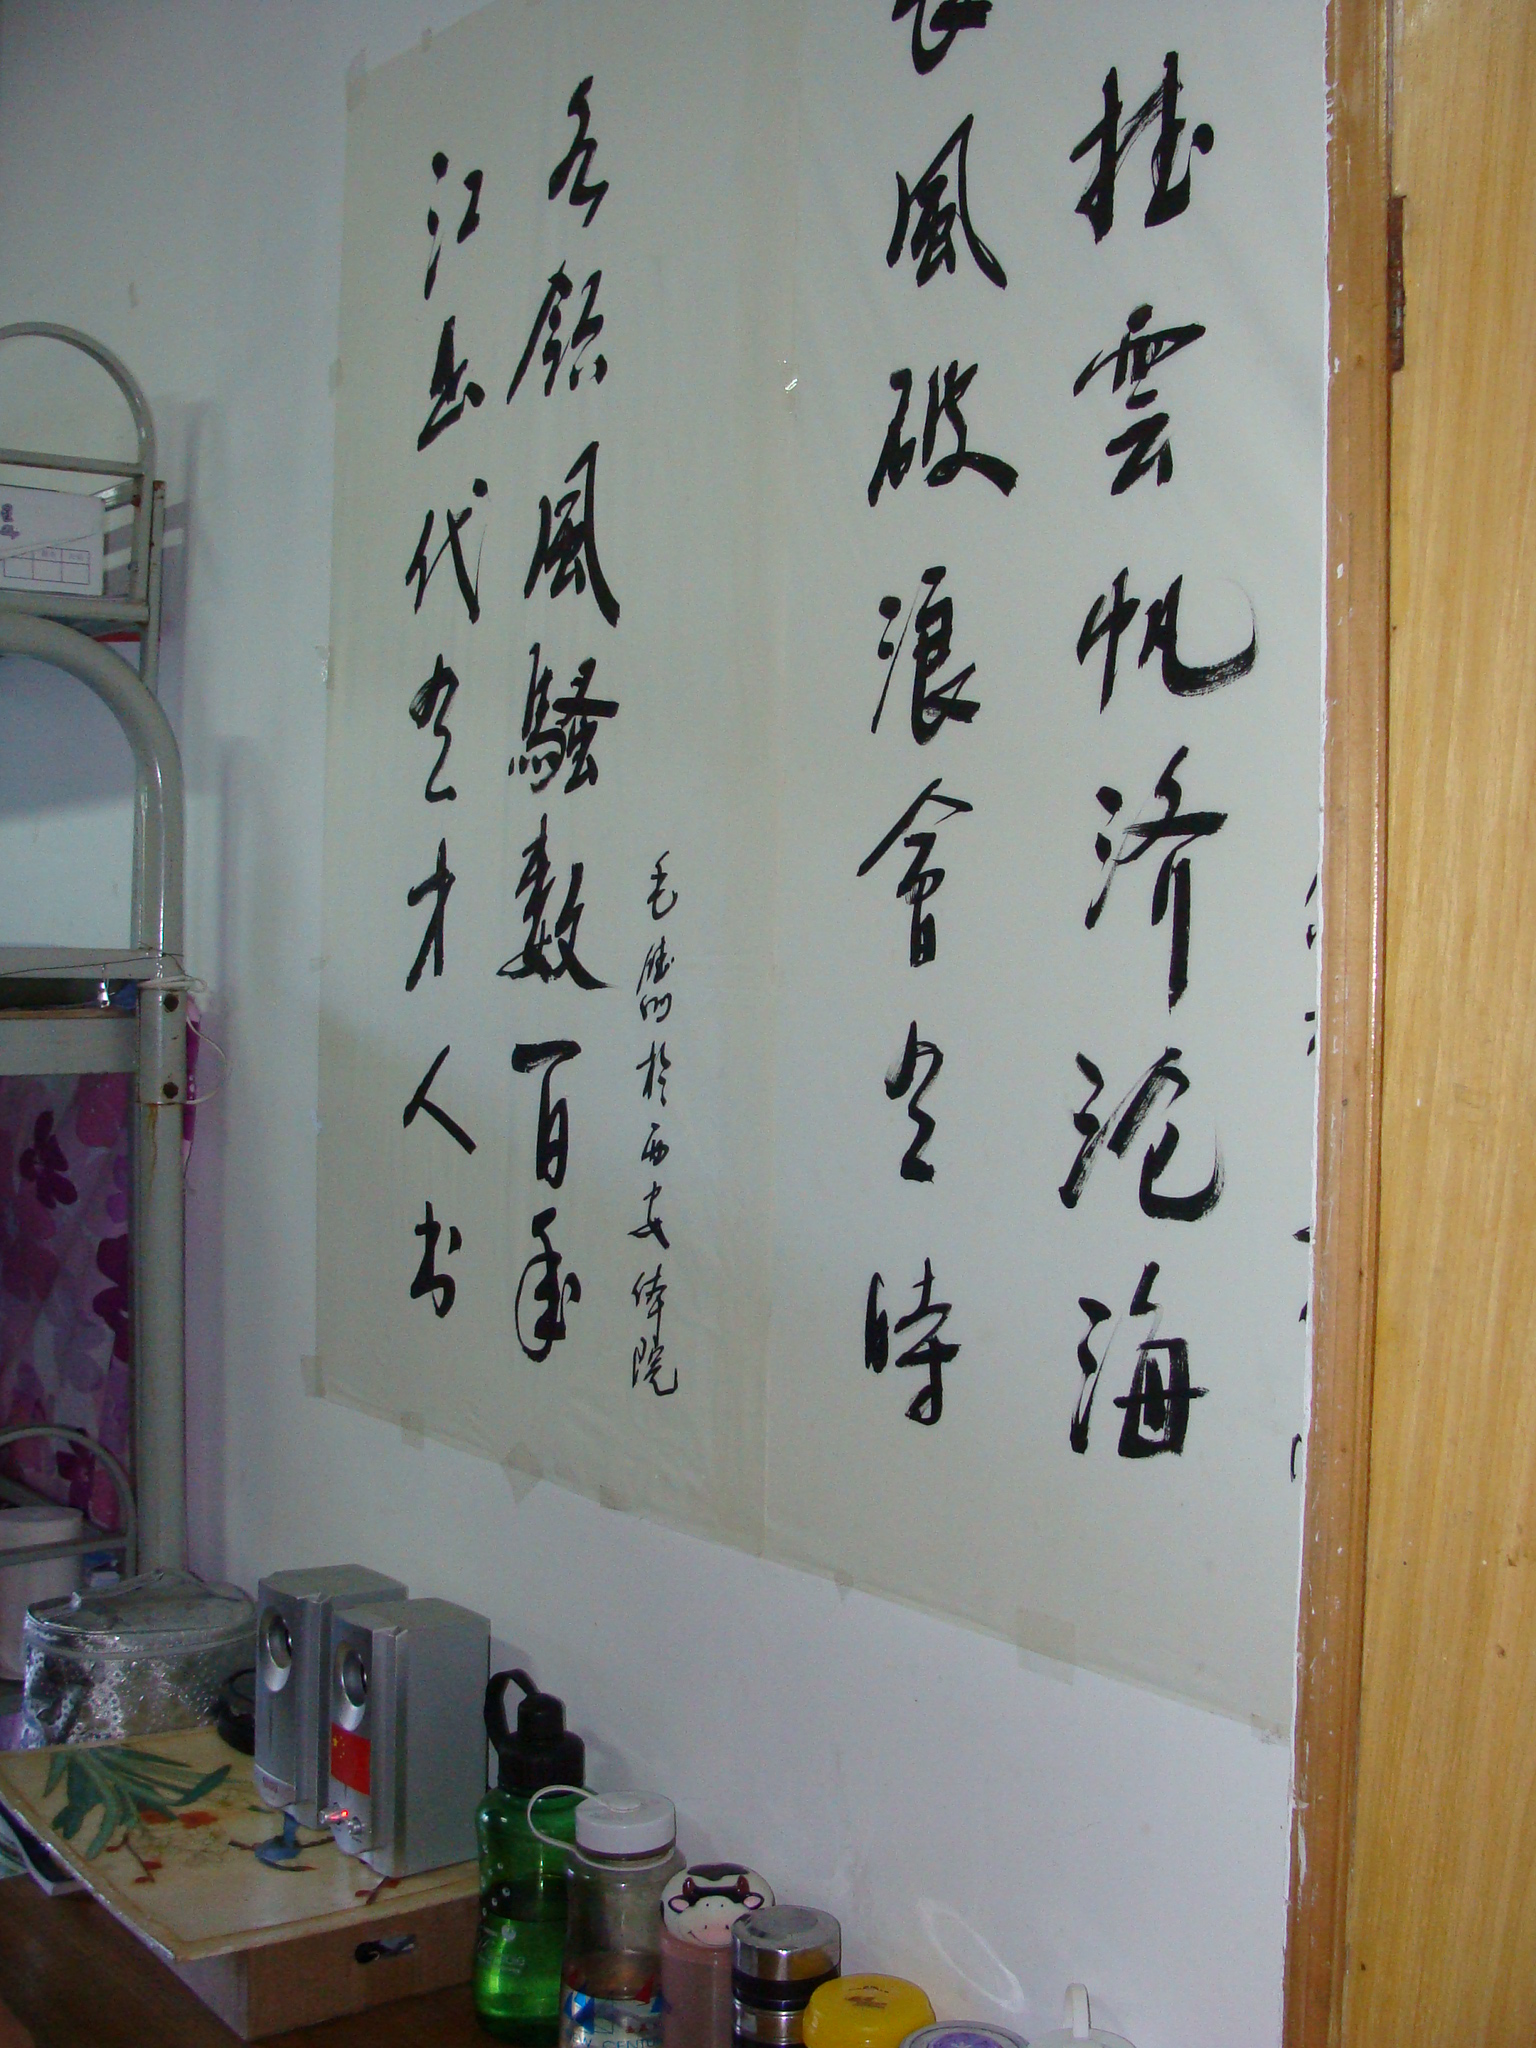 江山代有才人出
各領風騷數百年
毛 於西安体院
長風破浪會有時
挂雲帆济沧海